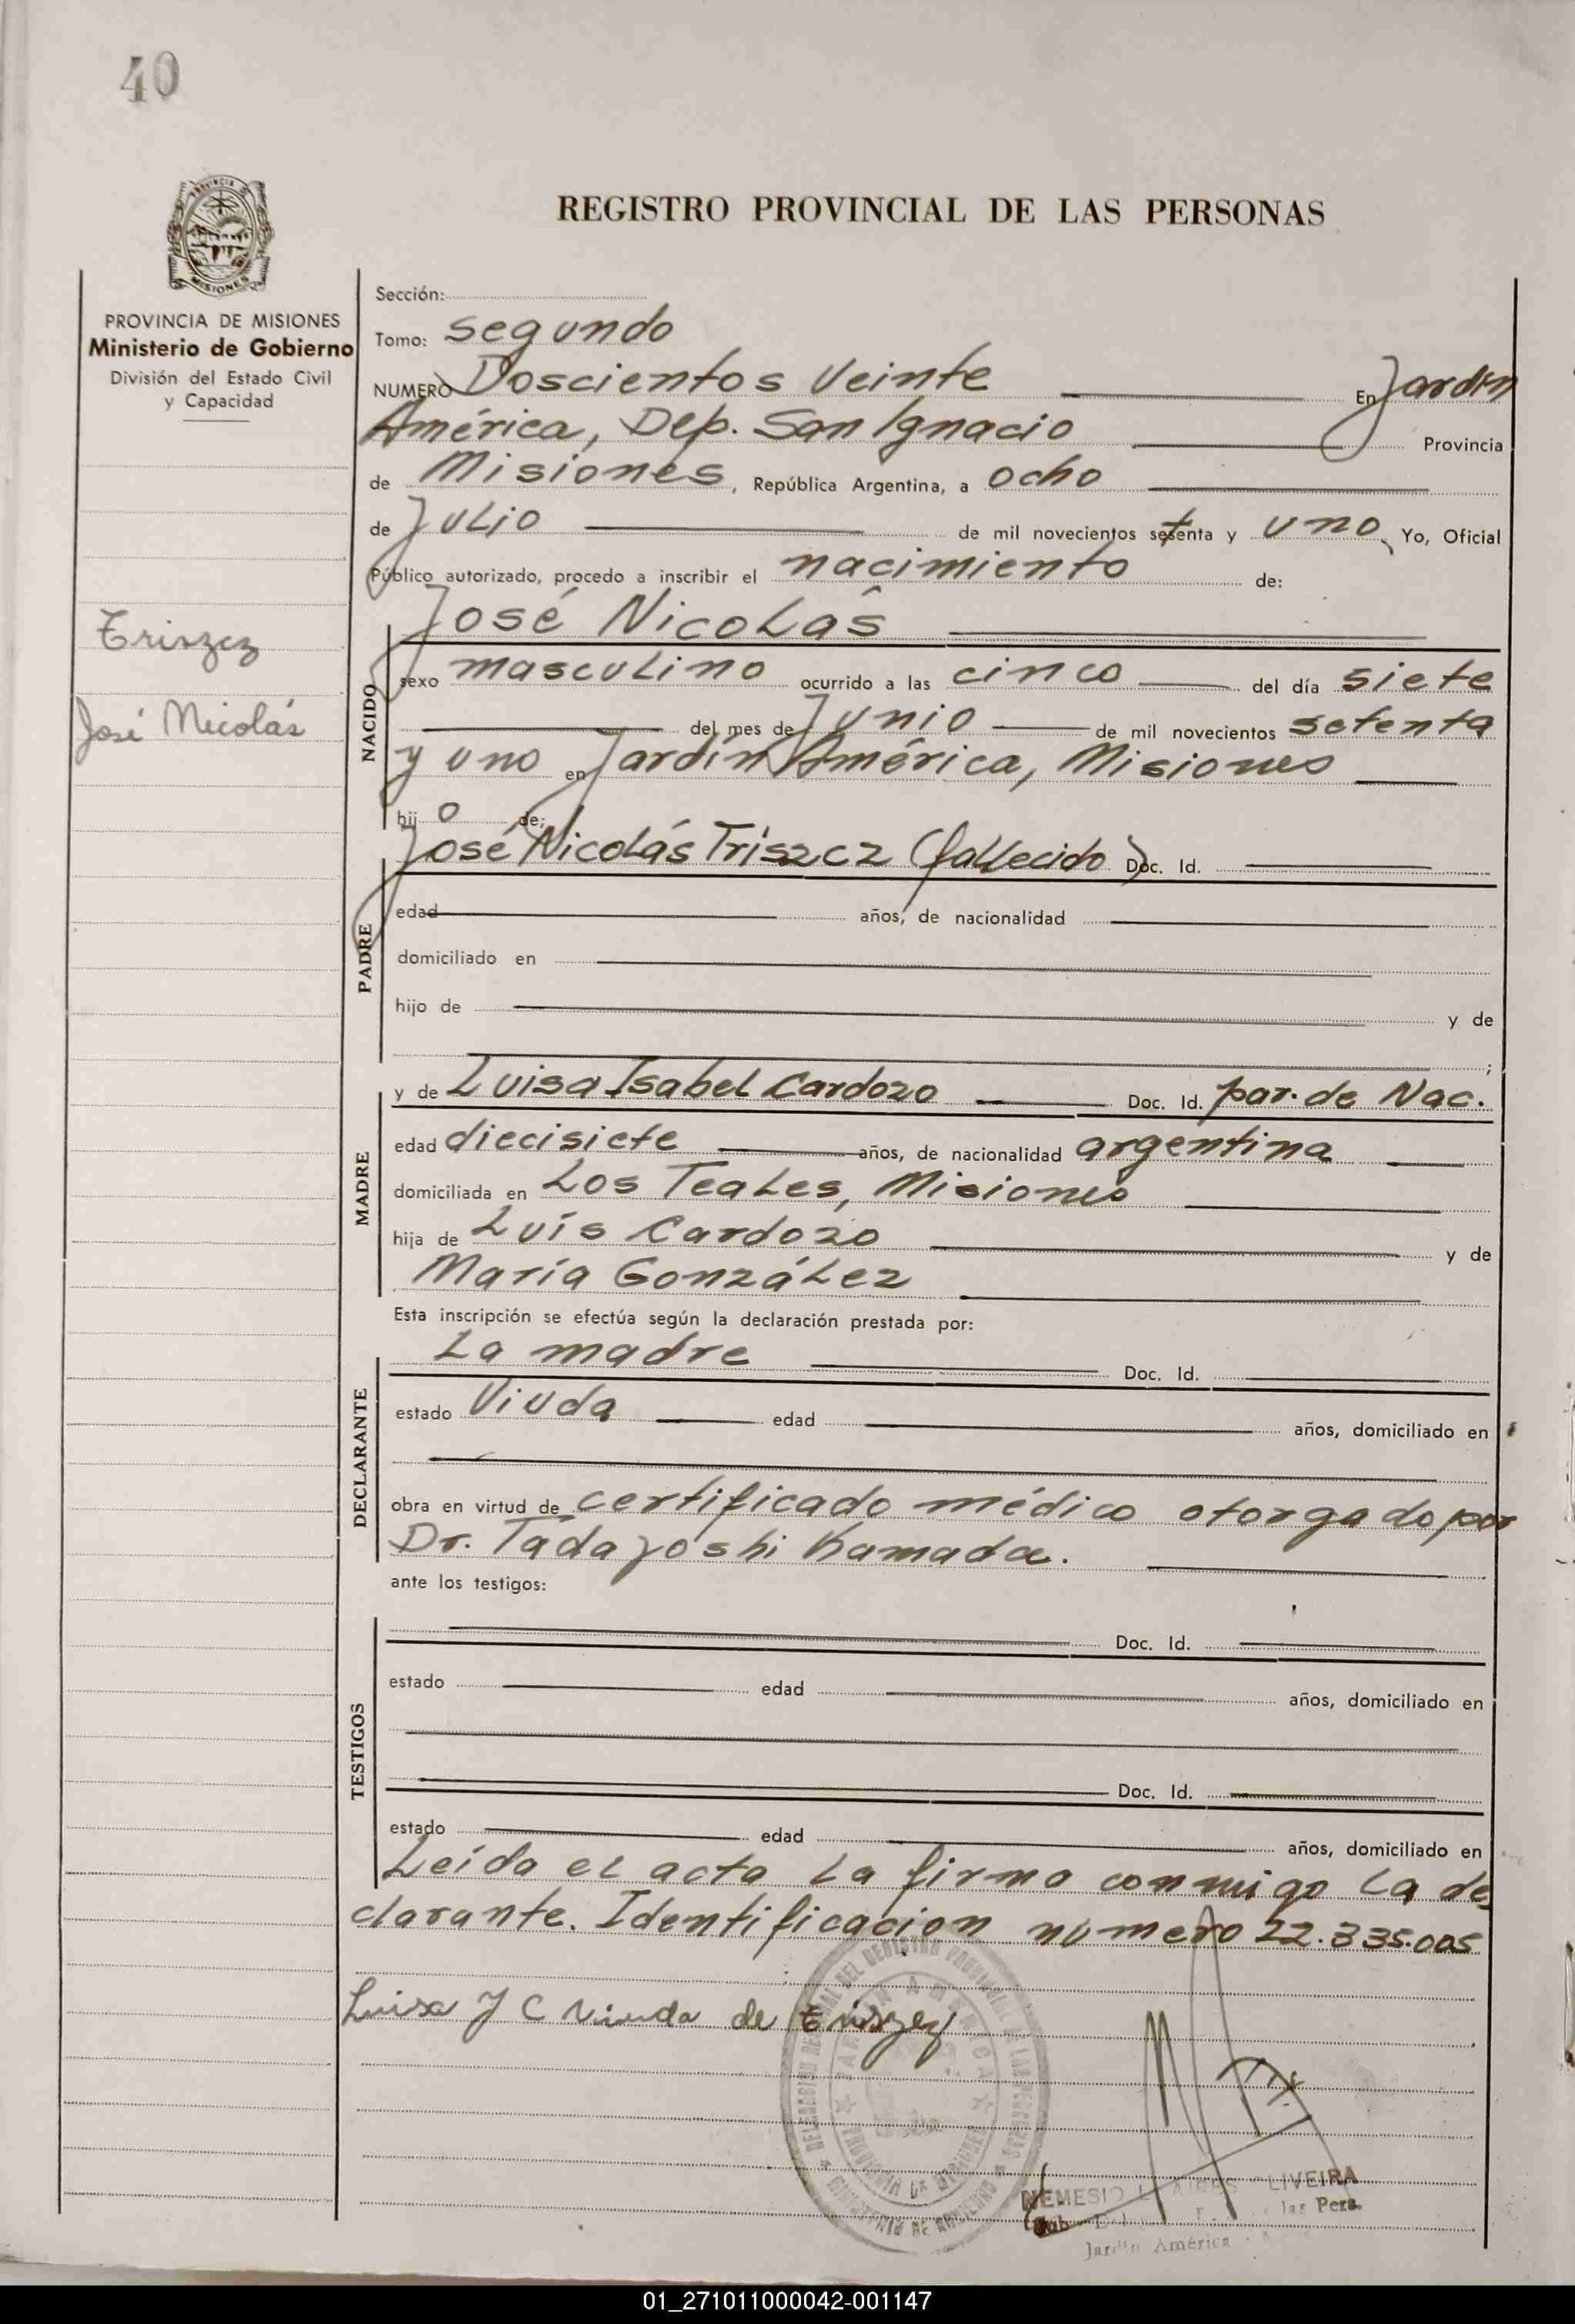 40
PROVINCIA DE MISIONES
REGISTRO PROVINCIAL DE LAS PERSONAS
PROVINCIA DE MISIONES
Ministerio de Gobierno
División del Estado Civil
y Capacidad
Triszcz
José Nicolás
Sección:
Tomo: segundo
NUMERO Doscientos Veinte En Jardín
América, Dep. San Ignacio Provincia
de Misiones, República Argentina, a ocho
de Julio de mil novecientos setenta y uno, Yo, Oficial
Público autorizado, procedo a inscribir el nacimiento de:
José Nicolás
NACIDO
sexo masculino ocurrido a las cinco del día siete
del mes de Junio de mil novecientos setenta
y uno en Jardín América, Misiones
hijo de:
José Nicolás Triszcz (fallecido) Doc. Id.
PADRE
edad años, de nacionalidad
domiciliado en
hijo de y de
;
MADRE
y de Luisa Isabel Cardozo Doc. Id. par. de Nac.
edad diecisiete años, de nacionalidad argentina
domiciliada en Los Teales, Misiones
hija de Luís Cardozo y de
María González
Esta inscripción se efectúa según la declaración prestada por:
La madre Doc. Id.
DECLARANTE
estado Viuda edad años, domiciliado en
obra en virtud de certificado médico otorgado por
Dr. Tadayoshi Kamada.
ante los testigos:
TESTIGOS
Doc. Id.
estado edad años, domiciliado en
Doc. Id.
estado edad años, domiciliado en
Leída el acta la firma conmigo la de
clarante. Identificación número 22.335.005
Luisa Y C Viuda de Triszcz
DELEGACION DEL REGISTRO PROVINCIAL DE LAS PERSONAS
JARDIN AMERICA
PROVINCIA DE MISIONES
MINISTERIO DE GOBIERNO
NEMESIO LIVEIRA
las Pers.
Jardín América
01_271011000042-001147